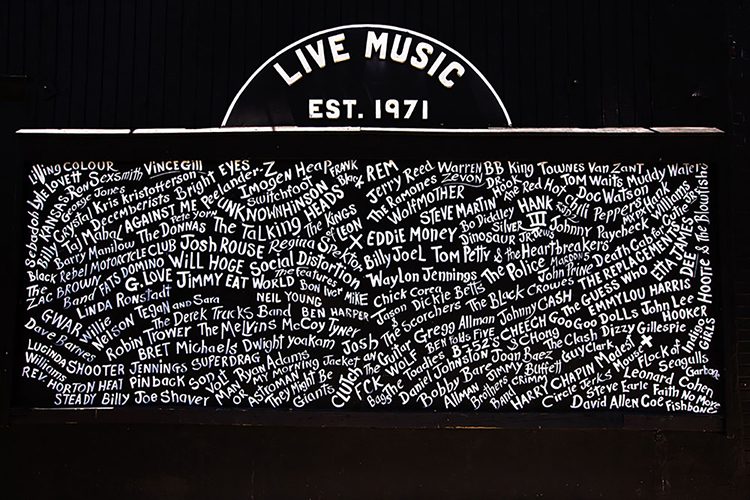 LIVE MUSIC
EST. 1971
COLOUR VINCE GILL EYES
Lyle LOVETT Ron Sexsmith
Reelander-Z Imogen Heap FRANK Black
REM Jerry Reed Warren Zevon BB King Townes Van Zant
Tom Waits Muddy Waters
Doc Watson
Bebadoh Billy KANSAS
George Jones
Crystal Kris Kristofferson
Decemberists Bright
Switchfoot
The Ramones
WOLFMOTHER
Red Hot Chili Peppers Hank Williams
Taj Mahal AGAINST ME Pete York UNKNOWNHINSON
STEVE MARTIN HANK III
Bo Diddley
Johnny Paycheck
Death Cab For Cutie
Barry Manilow The DONNAS The Talking HEADS
The KINGS of LEON
EDDIE MONEY Silver
Dinosaur JR.
Black Rebel MOTORCYCLE CLUB Josh ROUSE Regina Spektor
Billy Joel Tom Petty & the Heartbreakers
THE REPLACEMENTS
ETTA JAMES
HOOTIE & the Blowfish
The ZAC BROWN Band FATS DOMINO WILL HOGE Social Distortion
Waylon Jennings The Police MAROON 5
John Prine
G. LOVE JIMMY EAT WORLD The features
Bon Iver MIKE
Chick Corea
Jason & the Scorchers Dickie Betts The Black Crowes
The GUESS Who
EMMYLOU HARRIS
LINDA Ronstadt NEIL YOUNG
GWAR Willie Nelson TEGAN AND Sara
The Derek Trucks Band BEN HARPER
Gregg Allman Johnny CASH
Goo Goo DOLLS John Lee HOOKER
Dave Barnes Robin TROWER The MELVINS McCoy Tyner
Josh
BEN folds FIVE CHEECH & CHONG
The Clash Dizzy Gillespie
Indigo GIRLS
LUCINDA Williams SHOOTER JENNINGS
BRET Michaels Dwight yoakam
The Guitar WOLF B-52's
The Toadies Joan Baez Guy Clark
Modest Mouse
Flock of Seagulls
SUPERDRAG Ryan Adams
MY MORNING Jacket
Daniel Johnston Jimmy Buffett
HARRY CHAPIN
Leonard Cohen
REV. HORTON HEAT PINBACK Son Volt
MAN OR ASTROMAN
CLUTCH
Bobby Bare
Circle Jerks Steve Earle Faith No More
THE HOLD STEADY Billy Joe Shaver
They Might Be Giants
Allman Brothers BAND
David Allen Coe Fishbone